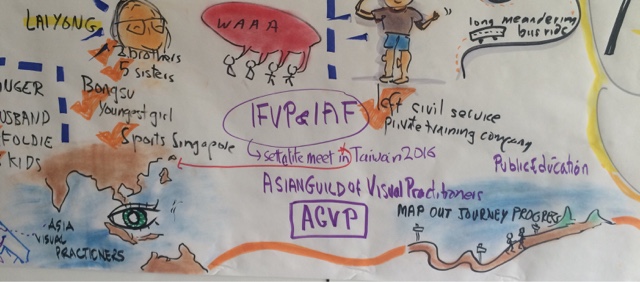 LAIYONG
2 brothers
5 sisters
Bongsu
Youngest girl
Sports Singapore
OUGER
USBAND
FOLDIE
KIDS
WAAA
long meandering
bus ride
IFVP & IAF
satalite meet in Taiwan 2016
left civil service
Private training company
Public Education
ASIAN GUILD OF Visual Practitioners
AGVP
ASIA
VISUAL
PRACTIONERS
MAP OUT JOURNEY PROGRESS